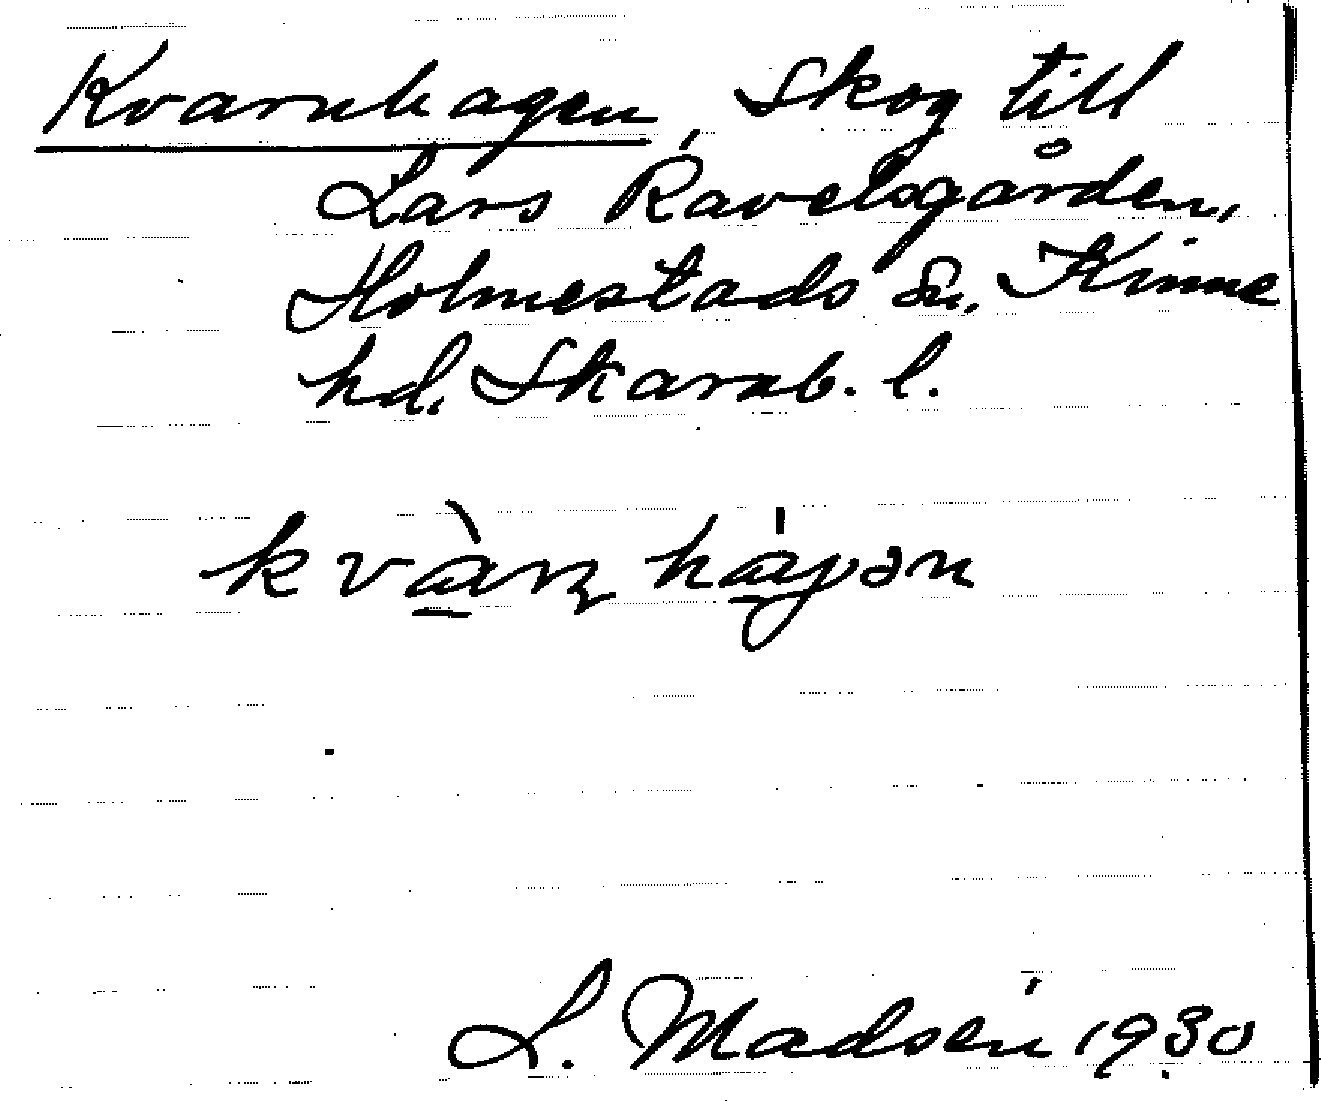 Kvarnhagen, Skog till
Lars Ravelsgården,
Holmestads sn, Kinne
hd. Skarab. l.
kvàṉ háɣən
L. Madsén 1930